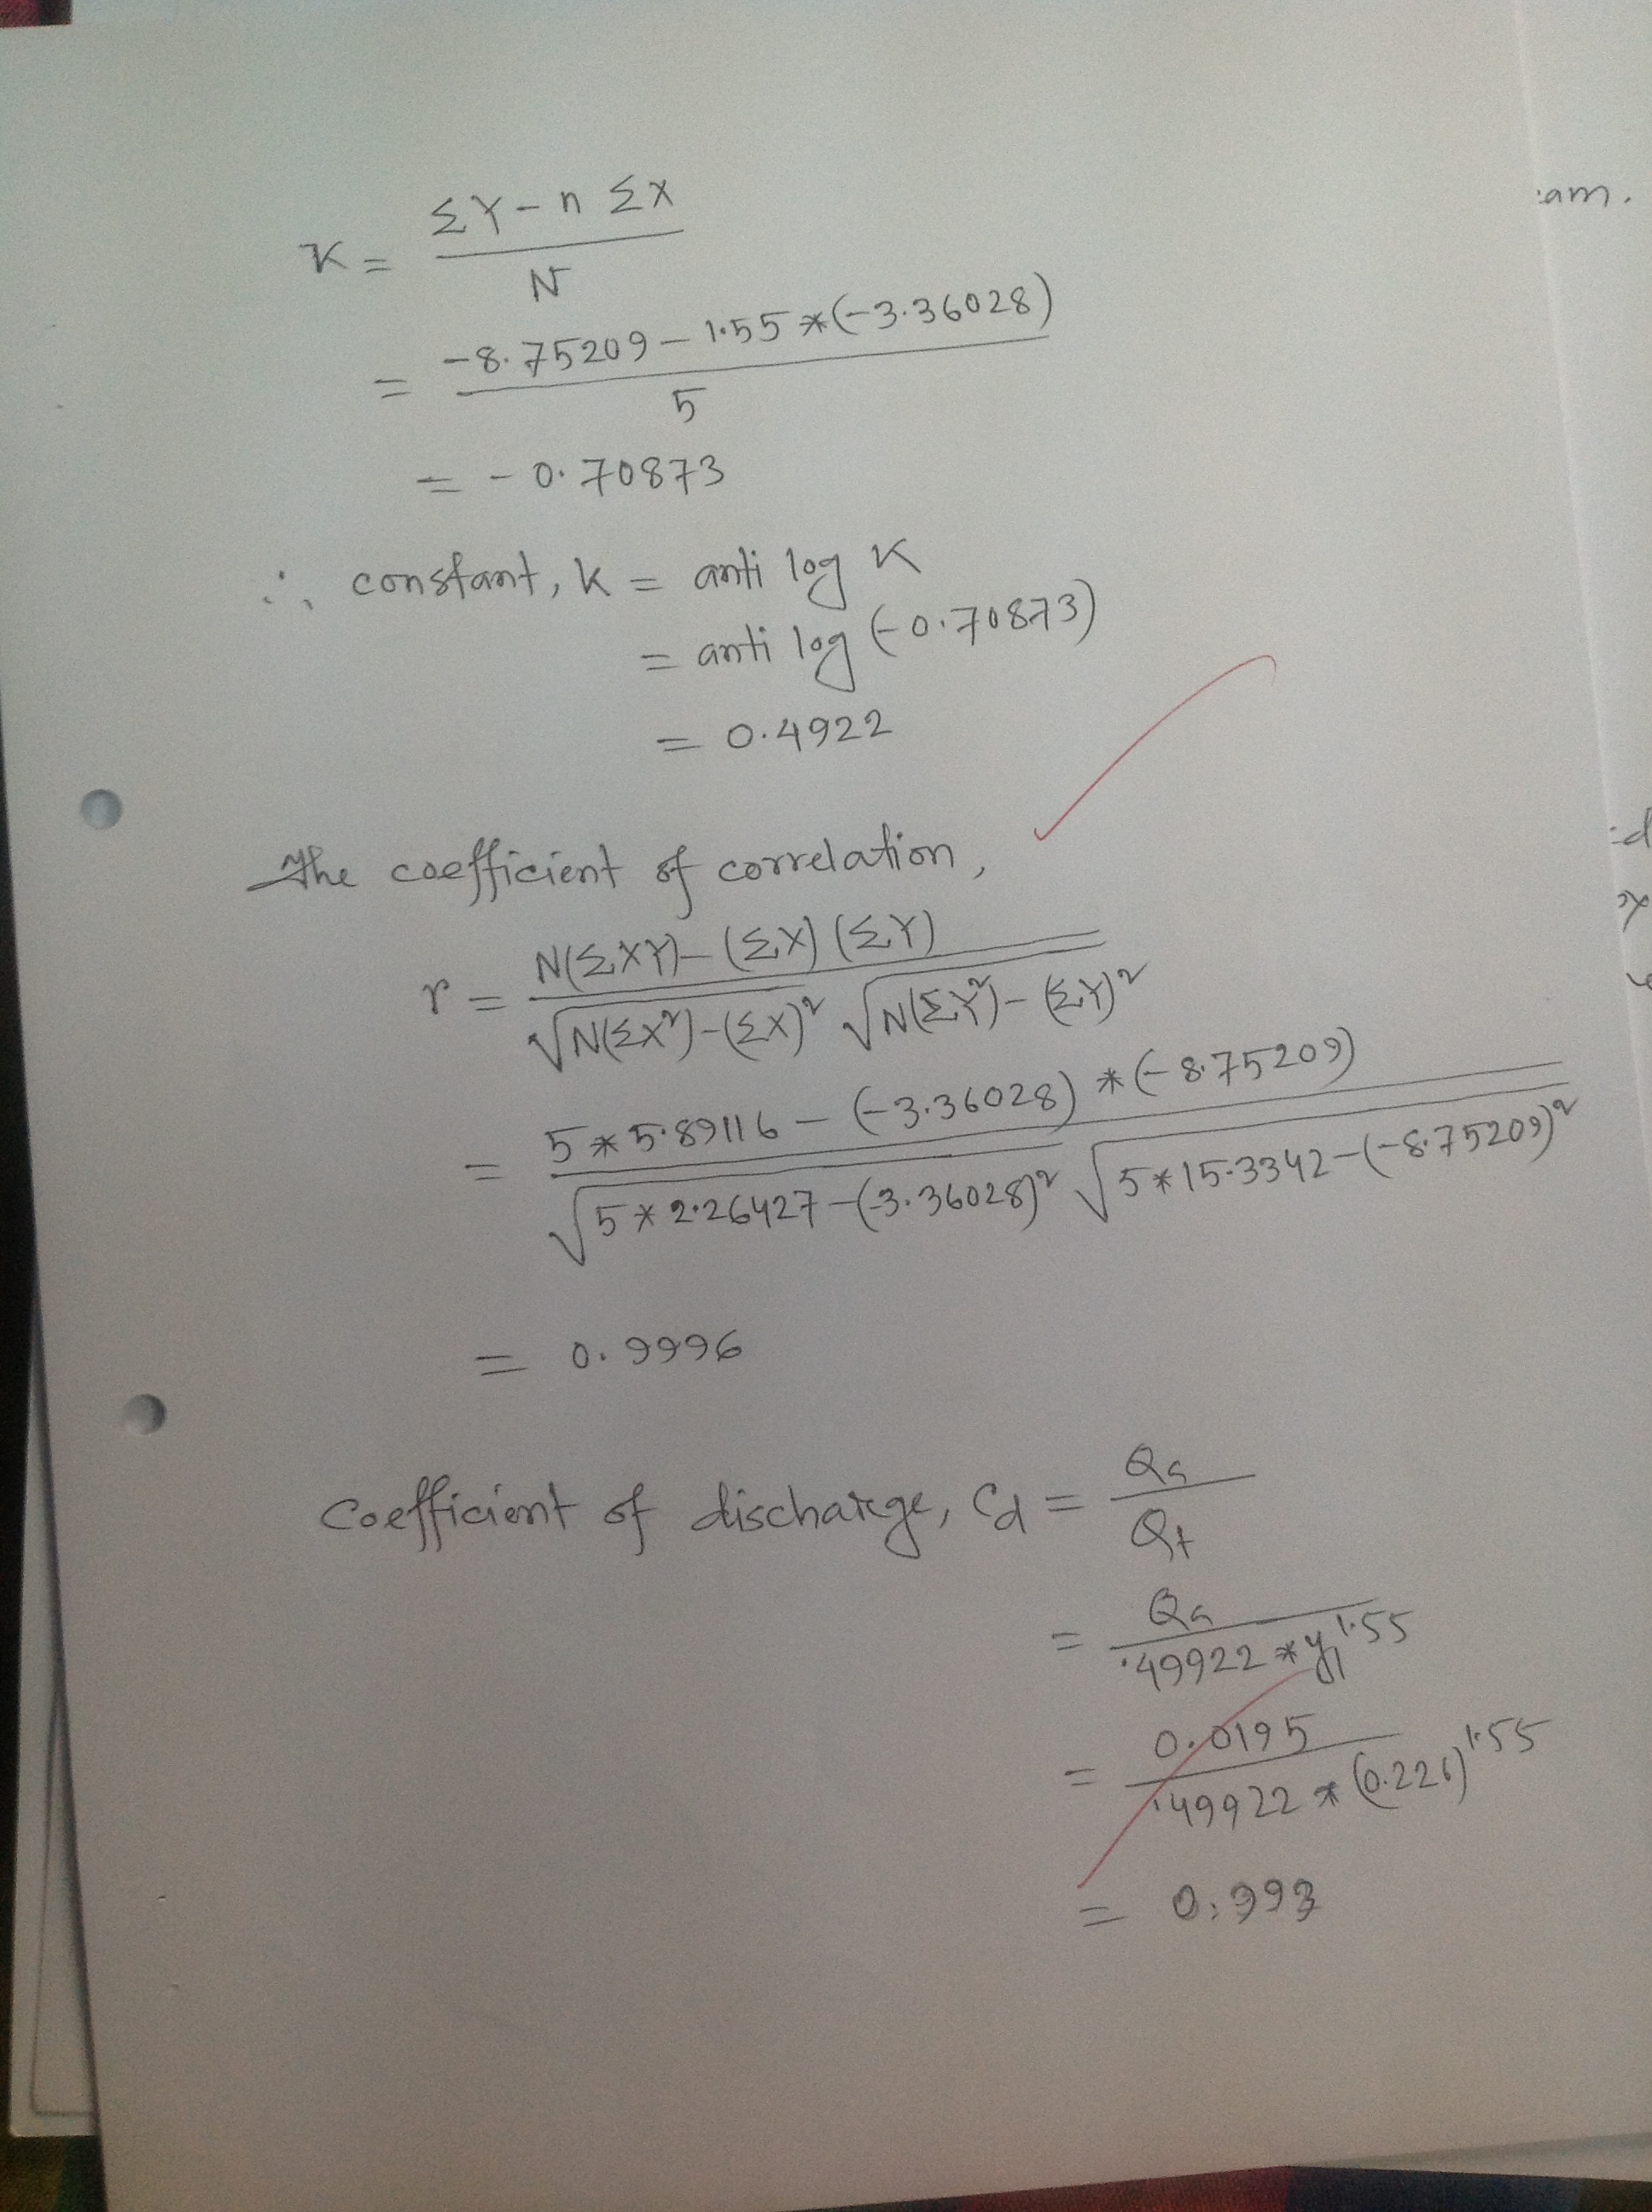 K = (ΣY - n ΣX) / N
= (-8.75209 - 1.55 * (-3.36028)) / 5
= - 0.70873
∴ constant, k = anti log K
= anti log (-0.70873)
= 0.4922
The coefficient of correlation,
r = (N(ΣXY) - (ΣX) (ΣY)) / (√N(ΣX²)-(ΣX)² √N(ΣY²)-(ΣY)²)
= (5 * 5.89116 - (-3.36028) * (-8.75209)) / (√5 * 2.26427 - (-3.36028)² √5 * 15.3342 - (-8.75209)²)
= 0.9996
Coefficient of discharge, Cd = Qa / Qt
= Qa / (.49922 * y₁^1.55)
= 0.0195 / (.49922 * (0.226)^1.55)
= 0.993
am.